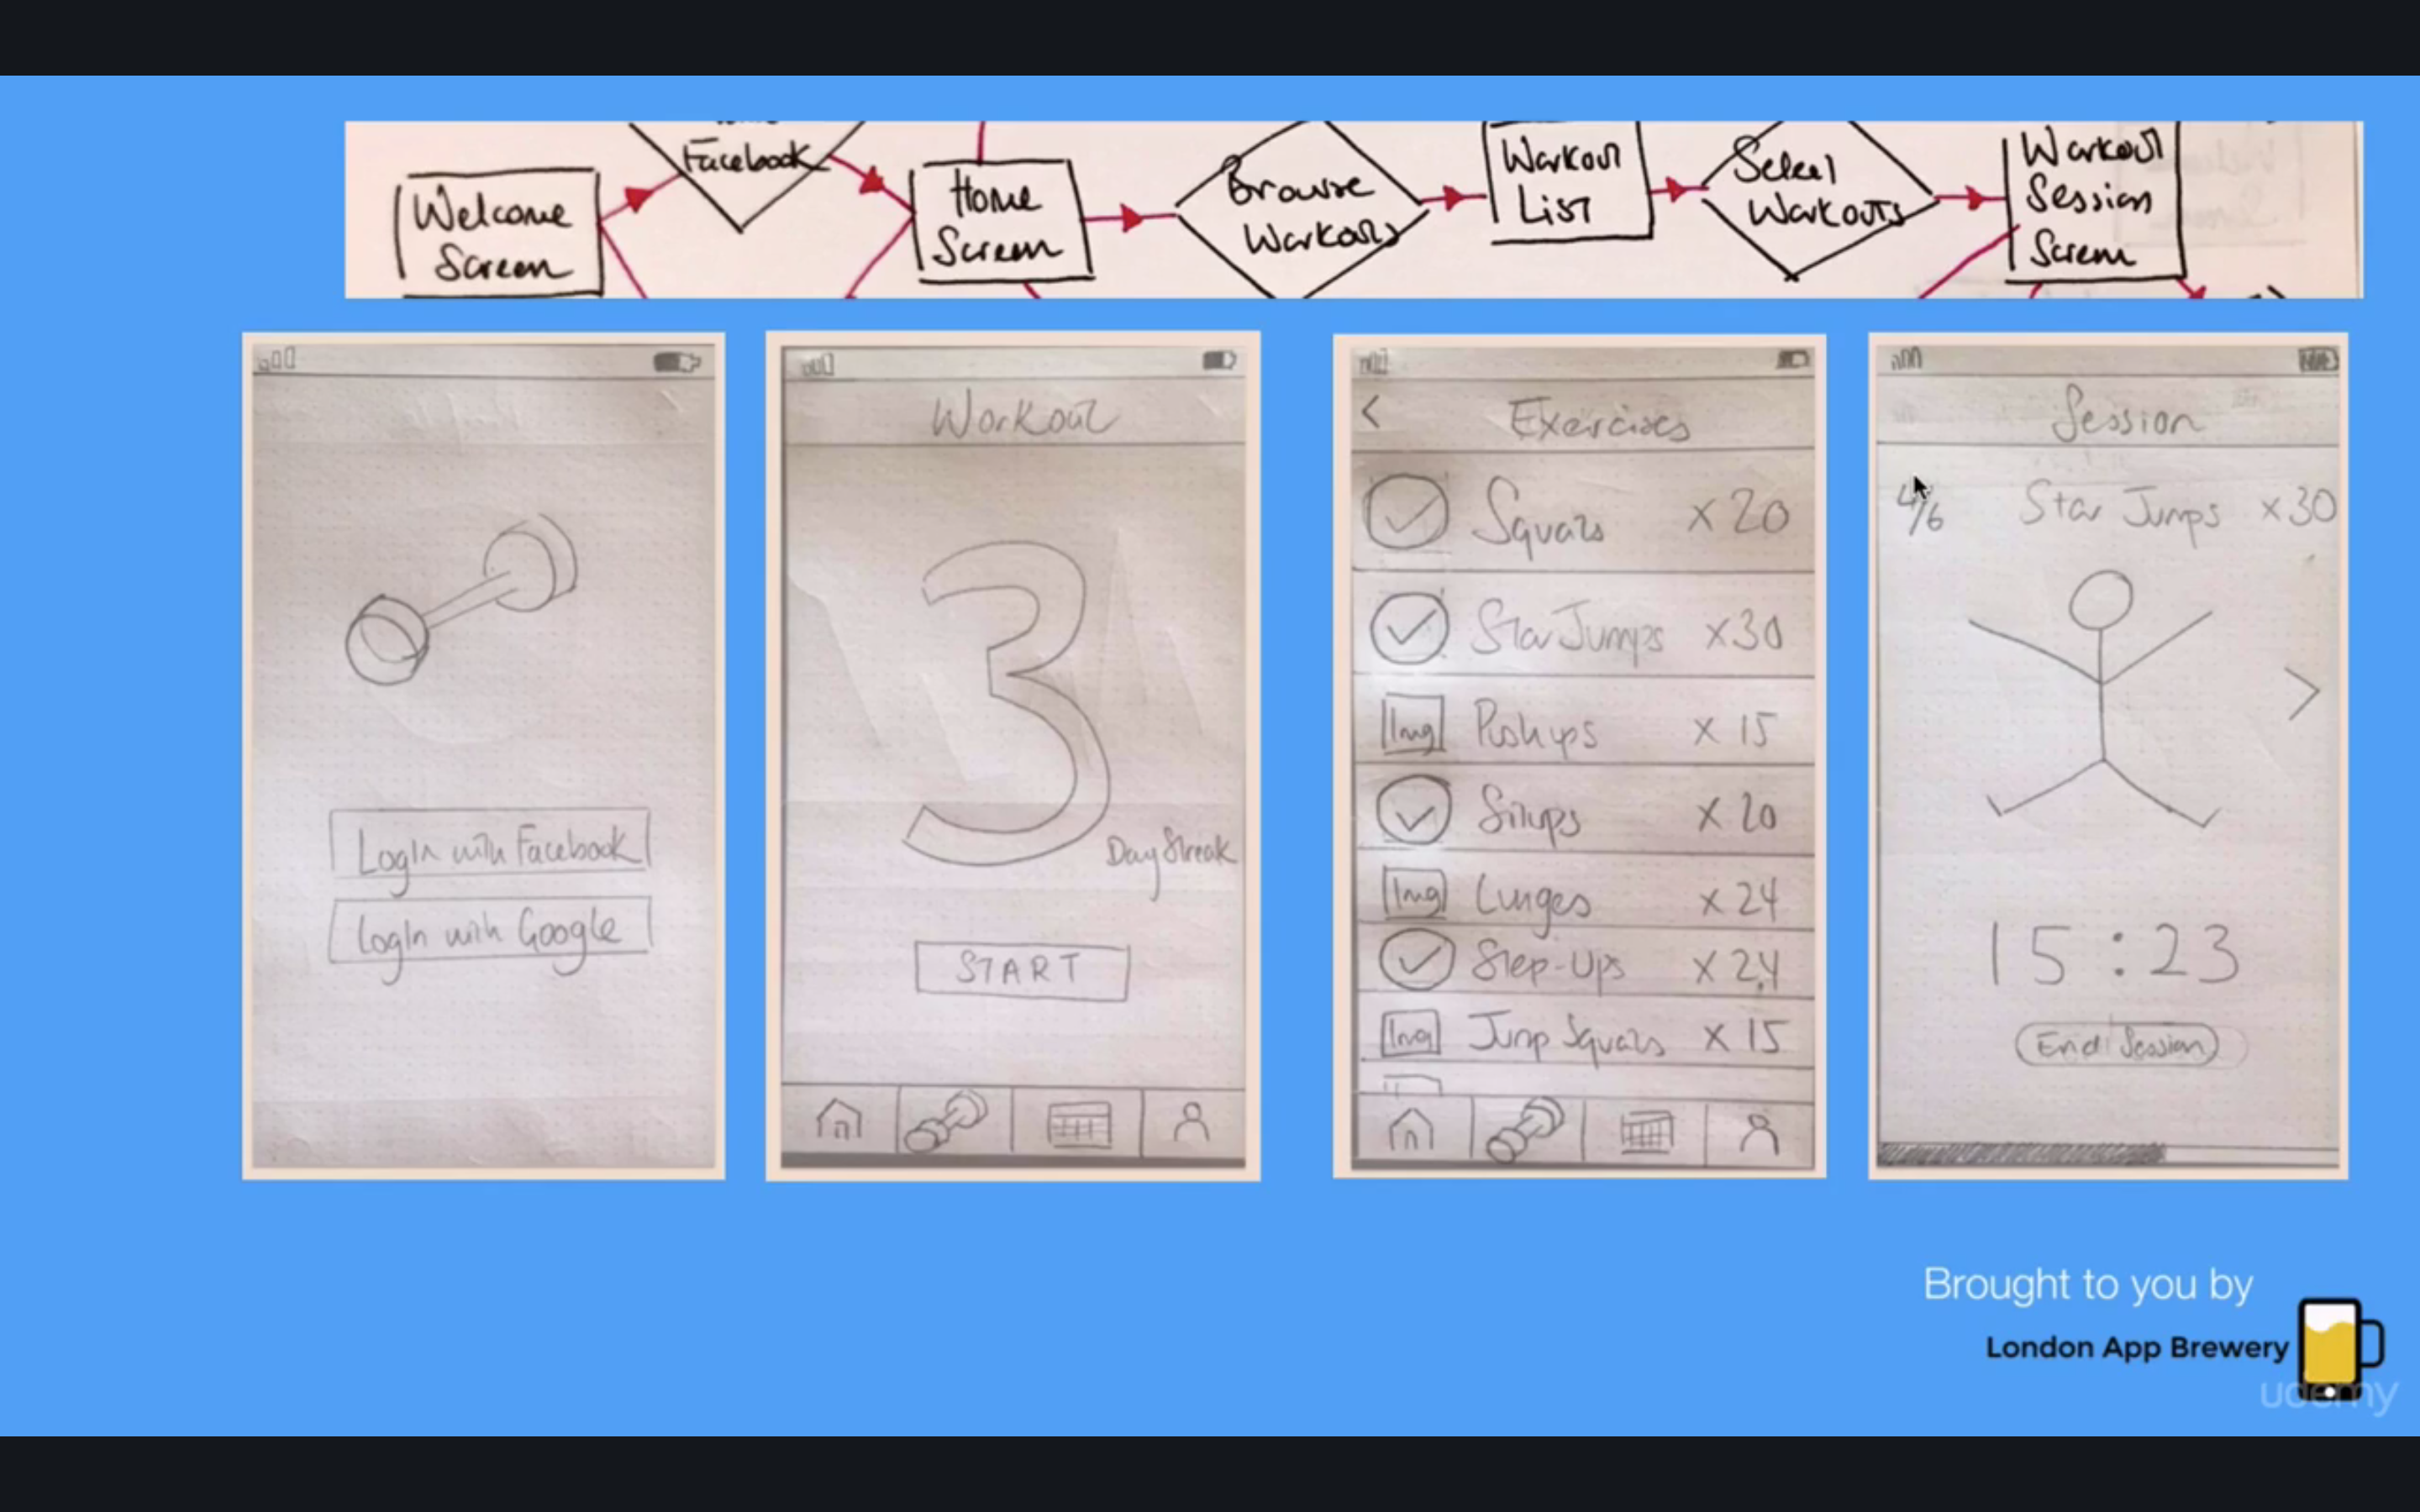 Facebook
Welcome
Screen
Home
Screen
Browse
Workouts
Workout
List
Select
Workouts
Workout
Session
Screen
LogIn with Facebook
LogIn with Google
Workout
3
Day Streak
START
<
Exercises
Squats x 20
Star Jumps x 30
Img Pushups x 15
Situps x 20
Img Lunges x 24
Step-Ups x 24
Img Jump Squats x 15
Session
4/6 Star Jumps x 30
>
15:23
End Session
Brought to you by
London App Brewery
udemy